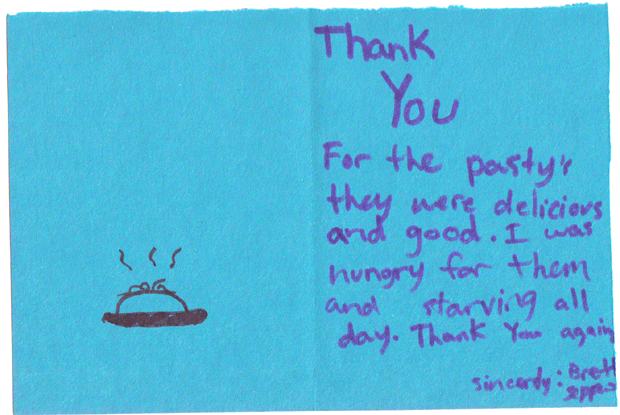 Thank
You
For the pasty's
they were delicious
and good. I was
hungry for them
and starving all
day. Thank You again
sincerly: Brett